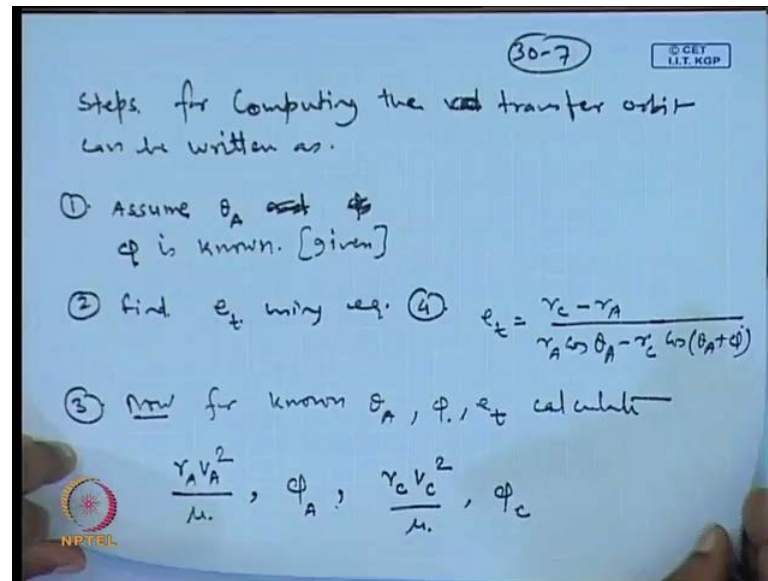 30-7
© CET
I.I.T. KGP
Steps for Computing the transfer orbit
can be written as.
① Assume θ_A
φ is known. [given]
② find e_t using eq. ④ e_t = (r_c - r_A) / (r_A cos θ_A - r_c cos(θ_A + φ))
③ Now for known θ_A, φ, e_t calculate
r_A v_A² / μ. , φ_A , r_c v_c² / μ. , φ_c
NPTEL